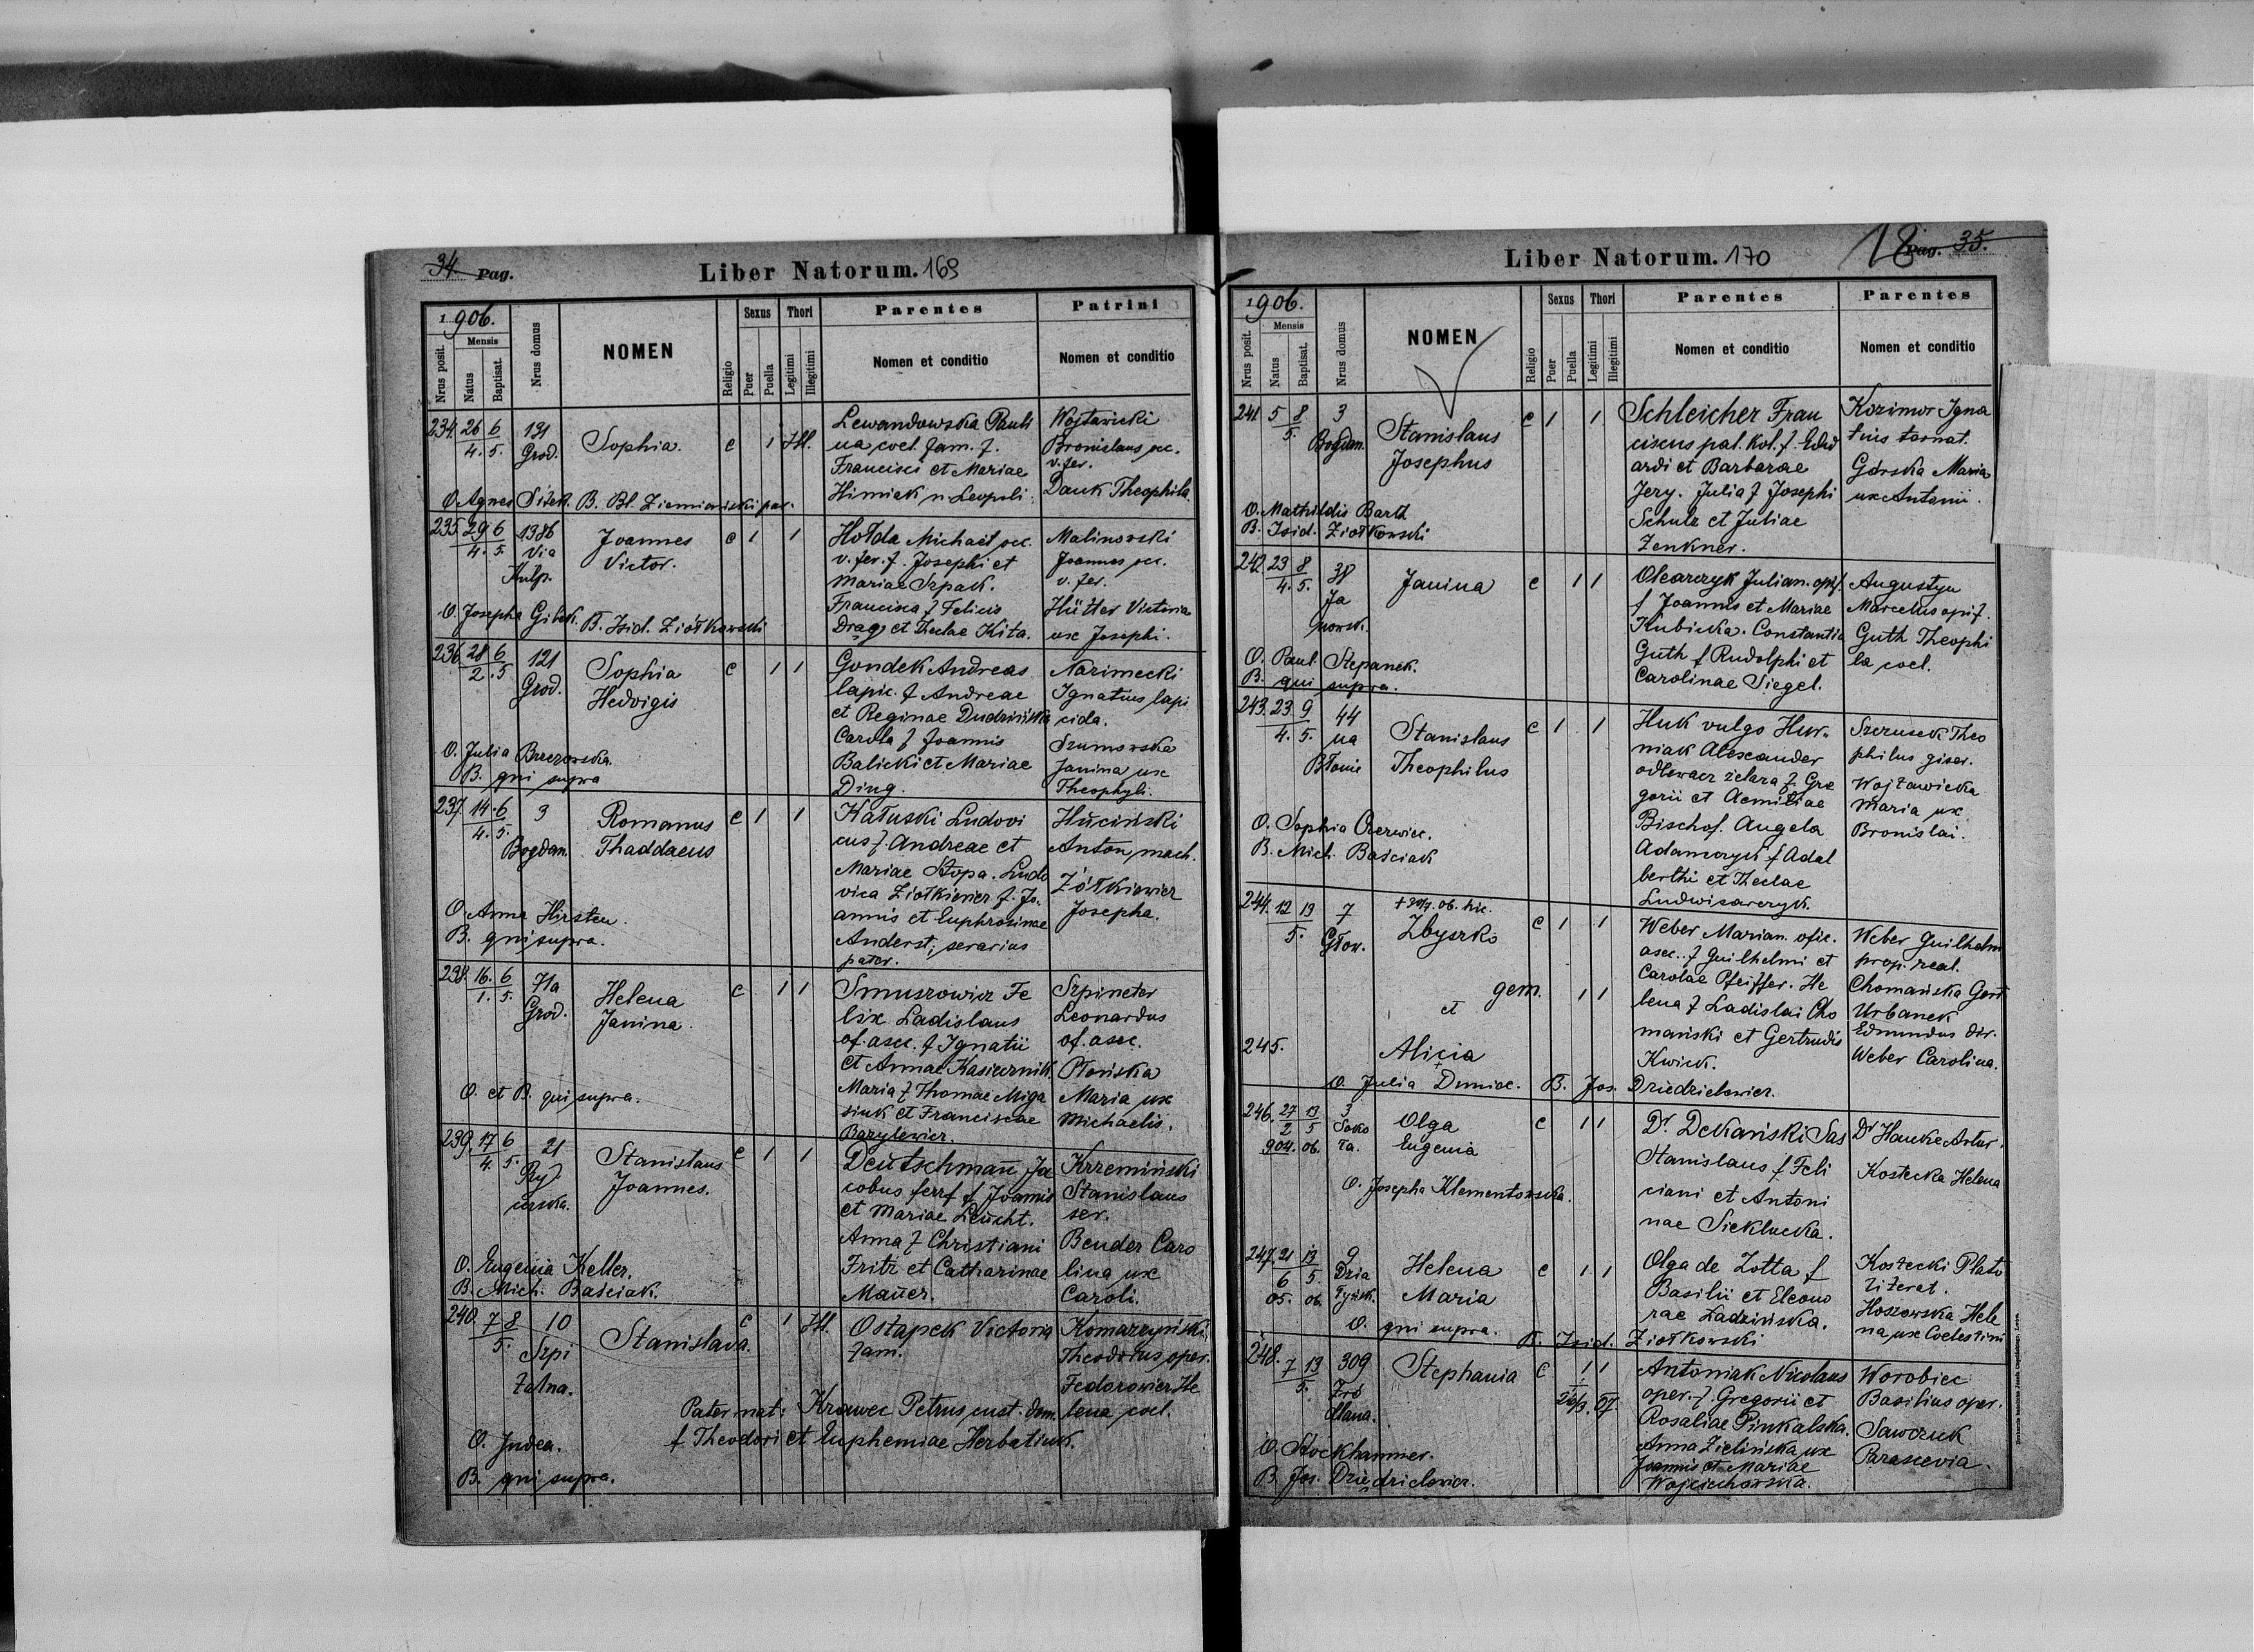 34. Pag.
Liber Natorum. 169
1906.
Nrus posit.
Mensis
Natus
Baptisat.
Nrus domus
NOMEN
Religio
Sexus
Puer
Puella
Thori
Legitimi
Illegitimi
Parentes
Nomen et conditio
Patrini
Nomen et conditio
234. 26/4. 6/5. 131 Grod.
Sophia. c 1 Ill.
Lewandowska Pauli
na coel. fam. f.
Francisci et Mariae
Himiak n Leopoli.
Wojtawicki
Bronislaus occ.
v. fer.
Dauk Theophila
O. Agnes Sitek. B. Bl. Ziemiański par.
235. 29/4. 6/5. 1386 Via Kulp.
Joannes
Victor. c 1 1
Hołda Michael occ.
v. fer. f. Josephi et
Mariae Szpak.
Francisca f Felicis
Drag et Theclae Kita.
Malinowski
Joannes occ.
v. fer.
Hütter Victoria
ux Josephi.
O. Josepha Gibek. B. Isid. Ziołkowski
236. 28/2. 6/5 121 Grod.
Sophia
Hedvigis c 1 1
Gondek Andreas
lapic. f Andreae
et Reginae Dudzińska
Carola f Joannis
Balicki et Mariae
Ding.
Narimecki
Ignatius lapi
cida.
Szumowska
Janina ux
Theophyli.
O. Julia Brzezowska.
B. qui supra
237. 14/4. 6/5. 3 Bogdan.
Romanus
Thaddaeus c 1 1
Kałuski Ludovi
cus f. Andreae et
Mariae Stopa. Ludo
vica Ziołkiewicz f. Jo
annis et Euphrosinae
Anderst; serarius
pater.
Huciński
Anton mach.
Żółkiewicz
Josepha.
O. Anna Hirsten.
B. qui supra.
238. 16./1. 6/5. 71a Grod.
Helena
Janina. c 1 1
Smuszowicz Fe
lix Ladislaus
of. asec. f Ignatii
et Annae Kasiczniak.
Maria f Thomae Miga
siuk et Franciscae
Barylewicz.
Szpineter
Leonardus
of. asec.
Płońska
Maria ux
Michaelis.
O. et B. qui supra.
239. 17/4. 6/5. 21 Ry
cerska.
Stanislaus
Joannes. c 1 1
Deutschmann Ja
cobus ferrf f Joannis
et Mariae Leucht.
Anna f Christiani
Fritz et Catharinae
Mauer.
Krzemiński
Stanislaus
ser.
Bender Caro
lina ux
Caroli.
O. Eugenia Keller.
B. Mich. Baściak.
240. 7/5. 8 10 Szpi
talna.
Stanislava. c 1 Ill.
Ostapek Victoria
fam.
Komarzyński
Theodorus oper.
Fedorowicz He
lena coel.
Pater nat: Krawec Petrus cust. dom.
f Theodori et Euphemiae Herbatiuk.
O. Judea.
B. qui supra.
Liber Natorum. 170
18 Pag. 35.
1906.
Nrus posit.
Mensis
Natus
Baptisat.
Nrus domus
NOMEN
Religio
Sexus
Puer
Puella
Thori
Legitimi
Illegitimi
Parentes
Nomen et conditio
Parentes
Nomen et conditio
241. 5 8/5. 3 Bogdan.
Stanislaus
Josephus c 1 1
Schleicher Fran
ciscus pal. kol. f. Edu
ardi et Barbarae
Jery. Julia f Josephi
Schulz et Juliae
Zenkner.
Kozimor Igna
tius tornat.
Górska Maria
ux Antonii.
O. Mathildis Barth
B. Isid. Ziołkowski
242. 23/4. 8/5. 38 Ja
nowsk.
Janina c 1 1
Olearczyk Julian. opif.
f Joannis et Mariae
Kubicka. Constantia
Guth f Rudolphi et
Carolinae Siegel.
Augustyn
Marcellus opif.
Guth Theophi
la coel.
O. Paul. Stepanek.
B. qui supra.
243. 23/4. 9/5. 44 na
Błonie
Stanislaus
Theophilus c 1 1
Huk vulgo Hur
niak Alexander
odlewacz żelaza f. Gre
gorii et Aemiliae
Bischof. Angela
Adamczyk f Adal
berthi et Theclae
Ludwisarczyk.
Szerusek Theo
philus giser.
Wojtawicka
Maria ux
Bronislai.
O. Sophia Czerwiec.
B. Mich. Baściak
244. 12 13/5. 7 Głow.
Zbyszko c 1 1
gem.
et 1 1
245. Alicia
Weber Marian. ofic.
asec. f Guilhelmi et
Carolae Pfeiffer. He
lena f Ladislai Cho
mański et Gertrudis
Kwiek.
Weber Guilhelm
prop. real.
Chomańska Gert
Urbanek
Edmundus dir.
Weber Carolina.
O. Julia Dumiec. B. Jos. Dziedzielewicz.
246. 27/2 13/5 904. 06. 3 Soko
ła.
Olga
Eugenia c 1 1
Dr. Dekański Sas
Stanislaus f Feli
ciani et Antoni
nae Sieklucka.
Dr Hauke Artur.
Kostecka Helena
O. Josepha Klementowska.
247. 21/6 13/5. 05. 06. 9 Dzia
łyńsk.
Helena
Maria c 1 1
Olga de Zotta f
Basilii et Eleono
rae Ladzińska.
Kostecki Plato
literat.
Hoszowska Hele
na ux Coelestini
O. qui supra. B. Isid. Ziołkowski
248. 7 13/5. 309 Źró
dlana.
Stephania c 1 1
Antoniak Nicolaus
oper. f. Gregorii et
Rosaliae Pinkalska.
Anna Zielińska ux
Joannis et Mariae
Wojciechowska.
Worobiec
Basilius oper.
Sawczuk
Parascevia.
O. Stockhammer.
B. Jos. Dziedzielewicz.